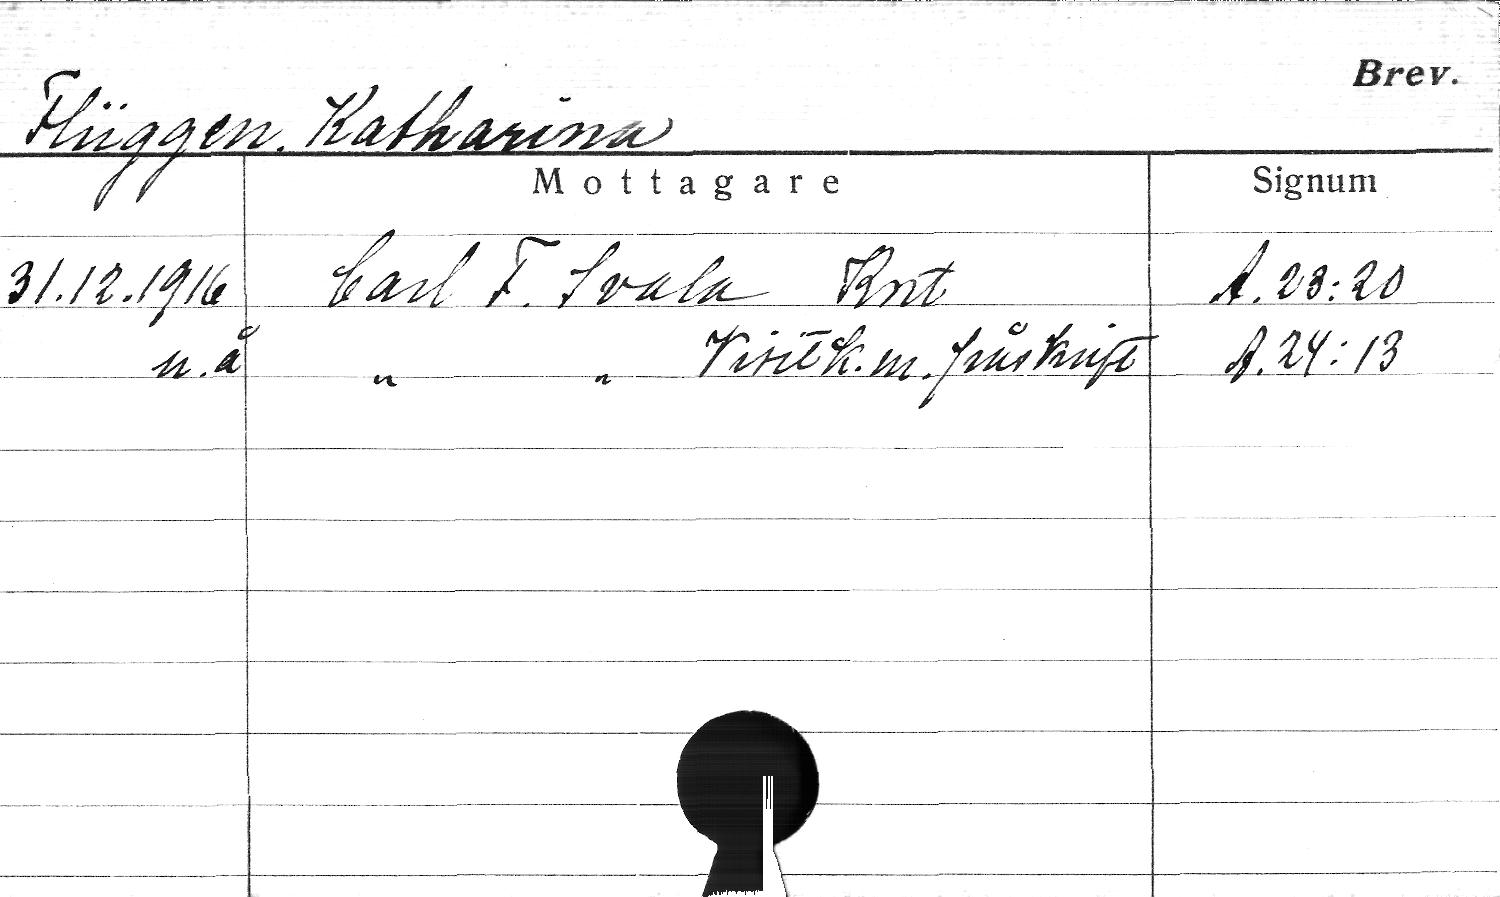 Brev.
Flüggen. Katharina
Mottagare Signum
31.12.1916 Carl F. Svala Knt A.23:20
u.å " " Visitk.m. påskrift A.24:13